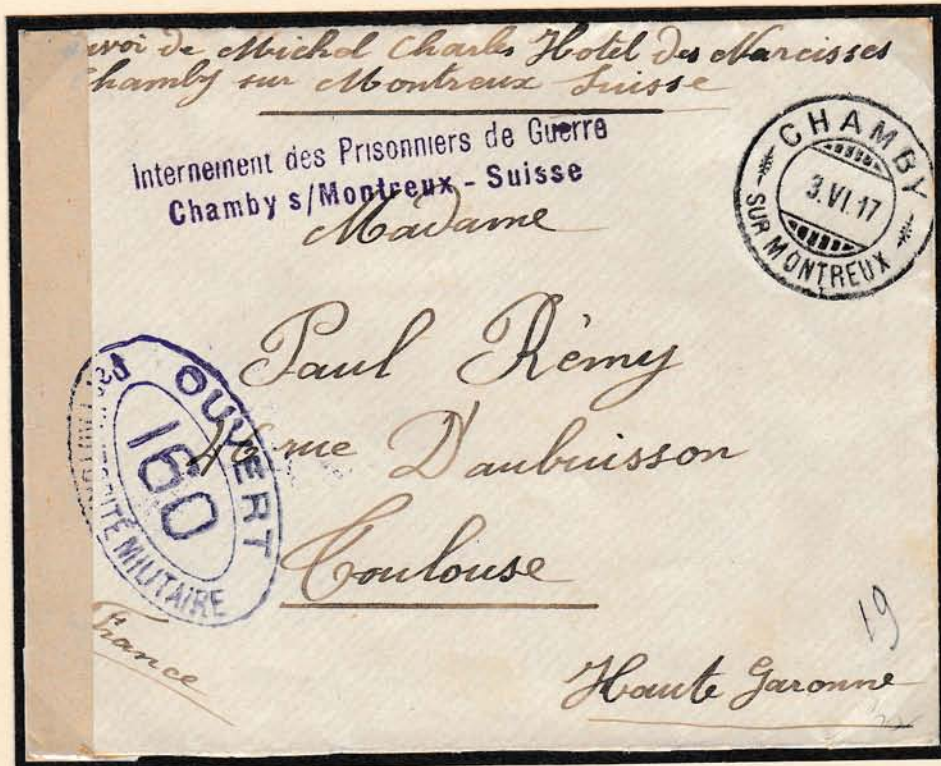 envoi de Michel Charles Hotel des Narcisses
Chamby sur Montreux Suisse
Internement des Prisonniers de Guerre
Chamby s/Montreux - Suisse
CHAMBY
3.VI.17
SUR MONTREUX
Madame
Paul Rémy
rue Daubuisson
Toulouse
OUVERT
160
Par l'AUTORITÉ MILITAIRE
France
19
Haute Garonne